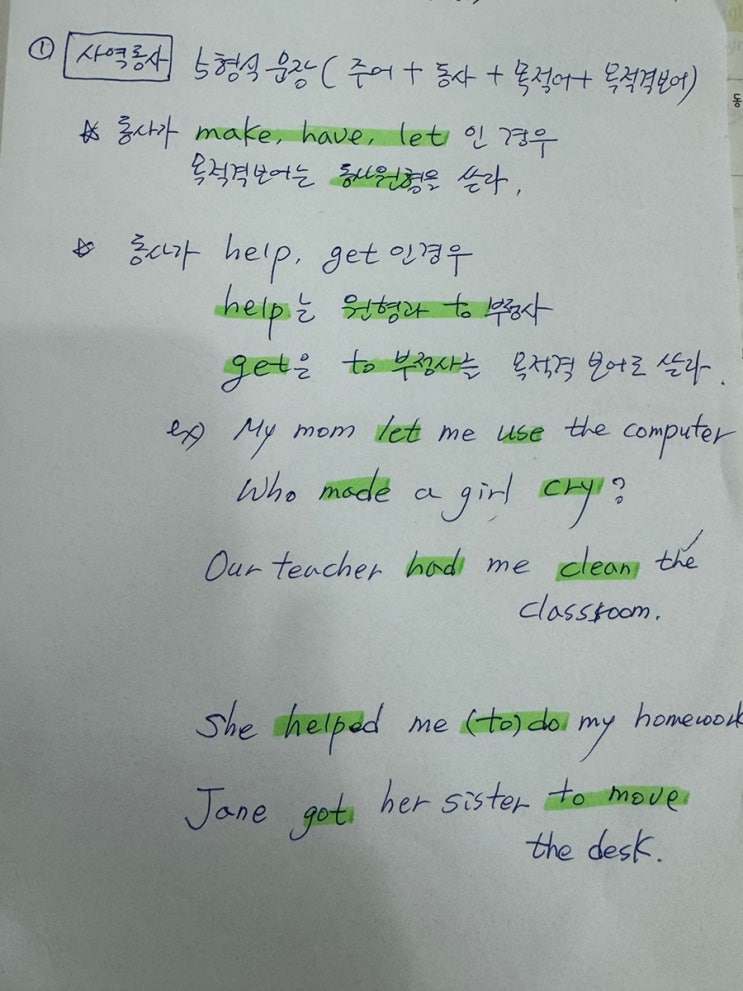 ① 사역동사 5형식 문장 ( 주어 + 동사 + 목적어 + 목적격보어)
☆ 동사가 make, have, let 인 경우
목적격보어는 동사원형을 쓰라.
☆ 동사가 help, get 인경우
help는 원형과 to 부정사
get은 to 부정사를 목적격 보어로 쓰라.
ex) My mom let me use the computer
Who made a girl cry?
Our teacher had me clean the
classroom.
She helped me (to) do my homework
Jane got her sister to move
the desk.